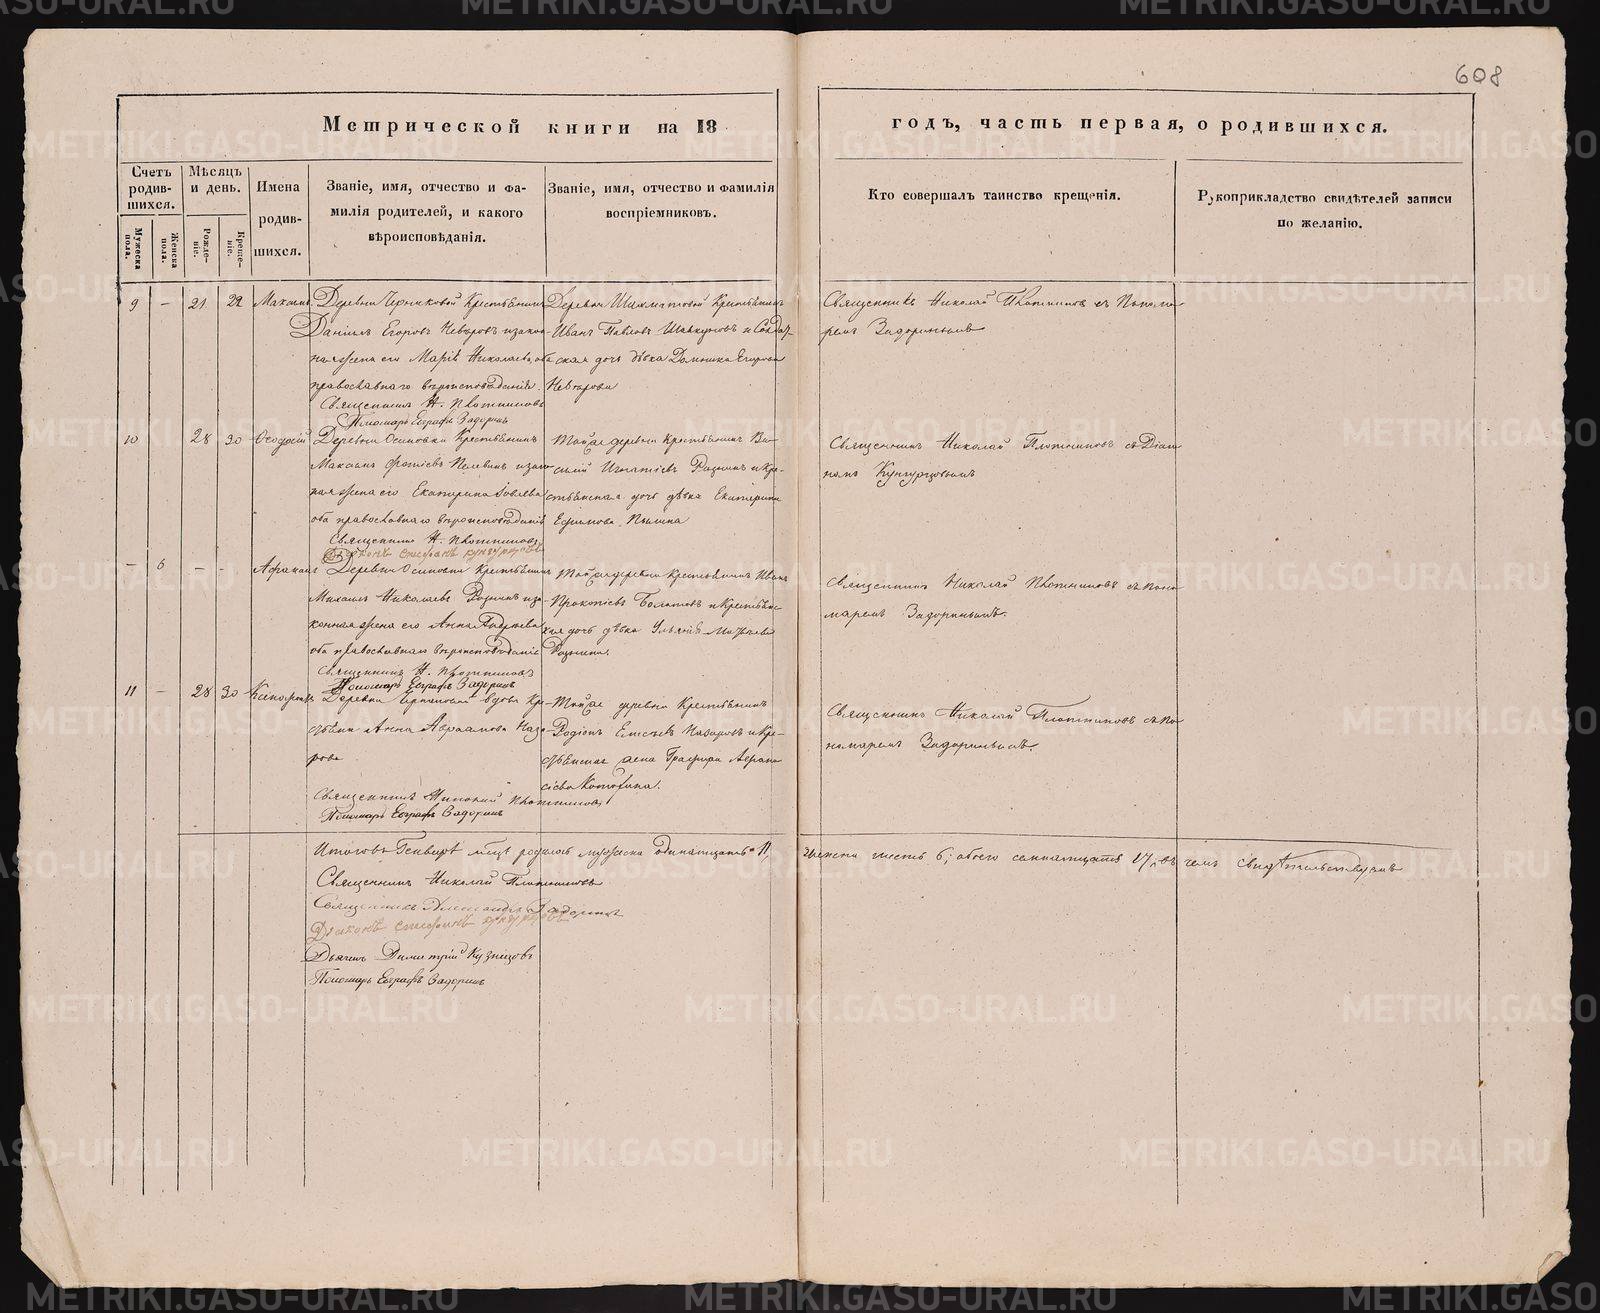 608
Метрической книги на 18
годъ, часть первая, о родившихся.
Счетъ родив-шихся.
Мѣсяцъ и день.
Мужеска пола.
Женска пола.
Рожде-ніе.
Креще-ніе.
Имена
родив-
шихся.
Званіе, имя, отчество и фа-
милія родителей, и какого
вѣроисповѣданія.
Званіе, имя, отчество и фамилія
воспріемниковъ.
Кто совершалъ таинство крещенія.
Рукоприкладство свидѣтелей записи
по желанію.
9 – 21 22 Максимъ
Деревни Черниковой Крестьянинъ
Даніилъ Егоровъ и закон-
ная жена его Марія Николаева оба
православнаго вѣроисповѣданія.
Священникъ Н. Плотниковъ
Пономарь Евграфъ Задоринъ
Деревни Шахматовой Крестьянинъ
Иванъ Павловъ и Солдат-
ская дочь дѣвка Домника Егорова
Священникъ Николай Плотниковъ съ Понома-
ремъ Задоринымъ
10 28 30 Ѳеодосій
Деревни Осиновки Крестьянинъ
Максимъ и закон-
ная жена его Екатерина
оба православнаго вѣроисповѣданія
Священникъ Н. Плотниковъ
Діаконъ Стефанъ Кунгурцовъ
Той же деревни Крестьянинъ Ва-
силій Игнатіевъ и Кре-
стьянская дочь дѣвка Екатерина
Ефимова
Священникъ Николай Плотниковъ съ Діако-
номъ Кунгурцовымъ
– 6 – –
Деревни Осиновки Крестьянинъ
Михаилъ Николаевъ и за-
конная жена его Анна
оба православнаго вѣроисповѣданія
Священникъ Н. Плотниковъ
Пономарь Евграфъ Задоринъ
Той же деревни Крестьянинъ Иванъ
Прокопіевъ и Крестьянс-
кая дочь дѣвка
Священникъ Николай Плотниковъ съ Поно-
маремъ Задоринымъ.
11 – 28 30
Деревни вдова Кре-
стьянка Анна Авраамова Наза-
рова
Священникъ Николай Плотниковъ
Пономарь Евграфъ Задоринъ
Той же деревни Крестьянинъ
Родіонъ Назаровъ и Кре-
стьянская жена
Священникъ Николай Плотниковъ съ По-
номаремъ Задоринымъ
Итого въ Генварѣ м-цѣ родилось мужеска одинатцать 11, женска шесть 6; обоего семнатцать 17, въ чемъ свидѣтельствуемъ
Священникъ Николай Плотниковъ
Священникъ Александръ Задоринъ
Діаконъ Стефанъ Кунгурцовъ
Дьячекъ Димитрій Кузнецовъ
Пономарь Евграфъ Задоринъ
METRIKI.GASO-URAL.RU